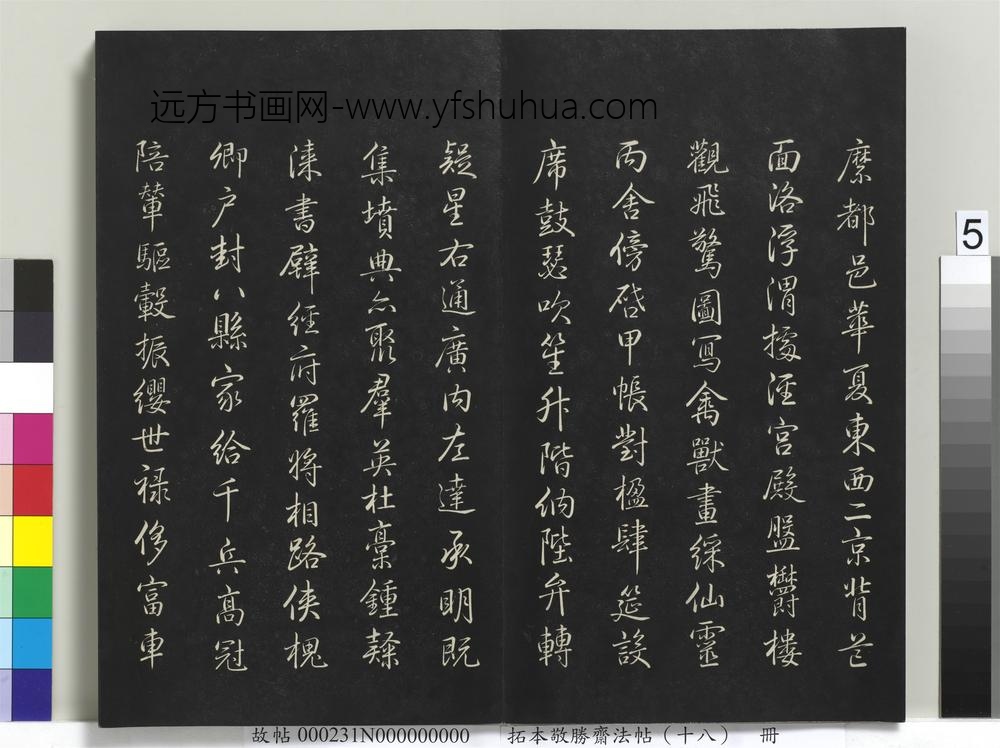 远方书画网-www.yfshuhua.com
縻都邑華夏東西二京背芒
面洛浮渭據涇宮殿盤欝樓
觀飛驚圖寫禽獸畫綵仙靈
丙舍傍啓甲帳對楹肆筵設
席鼓瑟吹笙升階納陛弁轉
疑星右通廣內左達承明既
集墳典亦聚羣英杜稾鍾隸
漆書壁經府羅將相路俠槐
卿戶封八縣家給千兵高冠
陪輦驅轂振纓世祿侈富車
5
故帖000231N000000000 拓本敬勝齋法帖（十八） 冊